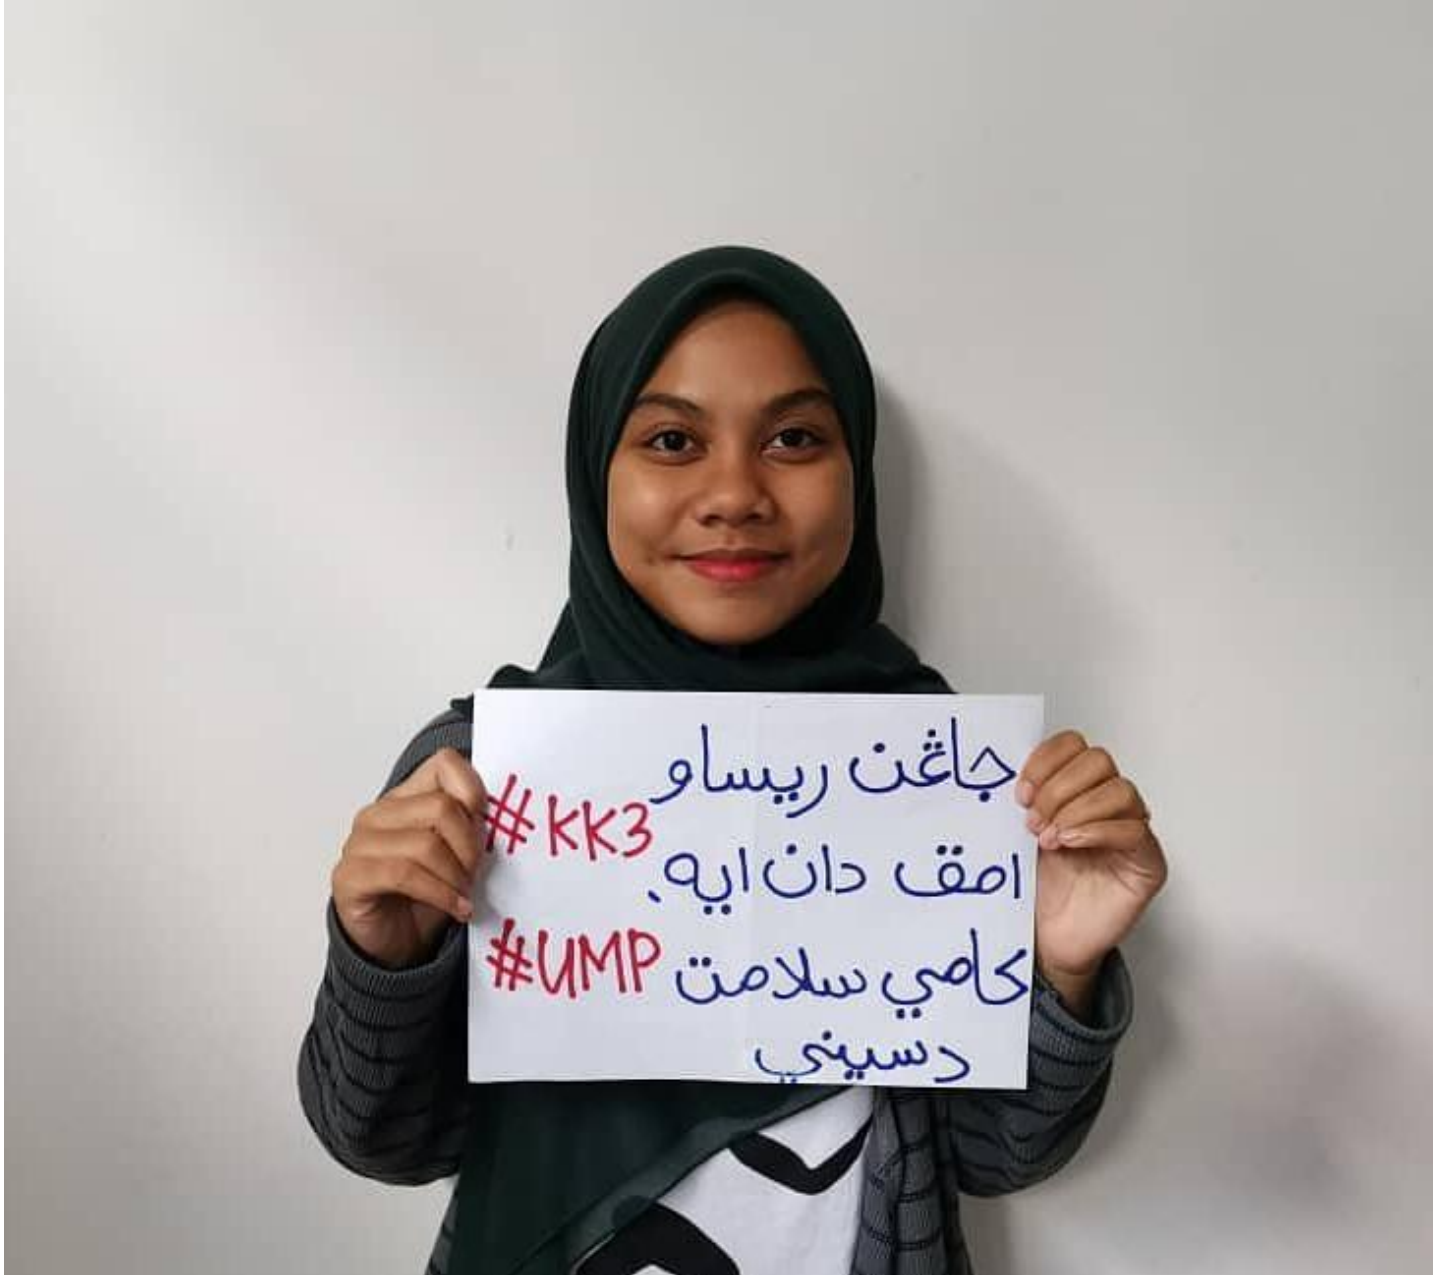 جاڠن ريساو
#KK3
امق دان ايه.
کامي سلامت
#UMP
دسيني